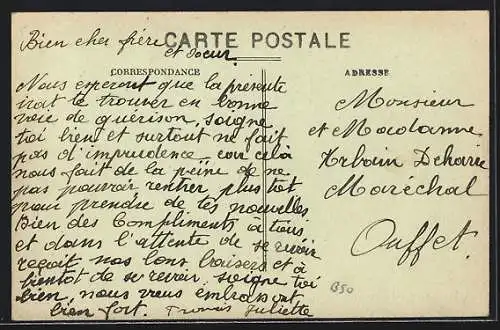 Bien cher frère
CARTE POSTALE
et soeur.
CORRESPONDANCE
ADRESSE
Nous esperont que la présente
irat te trouver en bonne
voie de guérison, soigne
toi bien et surtout ne fait
pas d'imprudence, car celà
nous fait de la peine de ne
pas pouvoir rentrer plus tot
pour prendre de tes nouvelles
Bien des Compliments a tous
et dans l'attente de se revoir
reçoit nos bons braisers et à
bientot de se revoir, soigne toi
bien, nous vous embrassont
bien fort. Juliette
Monsieur
et Madame
Urbain
Maréchal
Ouffet.
B50